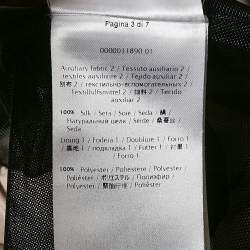 Pagina 3 di 7
0000011890 01
Auxiliary fabric 2 / Tessuto ausiliario 2 /
textiles auxiliire 2 / Tejido auxiliar 2 /
別布 2 / текстильно-вспомогательного 2 /
Textilhilfsmittel 2 / 辅料 2 / Tejido
auxiliar 2
100% Silk / Seta / Soie / Seda / 絹 /
Натуральный шелк / Seide / 桑蚕丝 /
Seda
Lining 1 / Fodera 1 / Doublure / Forro 1
/ 裏地 1 / подкладка 1 / Futter 1 / 衬里 1 /
Forro 1
100% Polyester / Poliestere / Polyester /
Poliéster / ポリエステル / Полиэфир /
Polyester / 聚酯纤维 / Poliéster